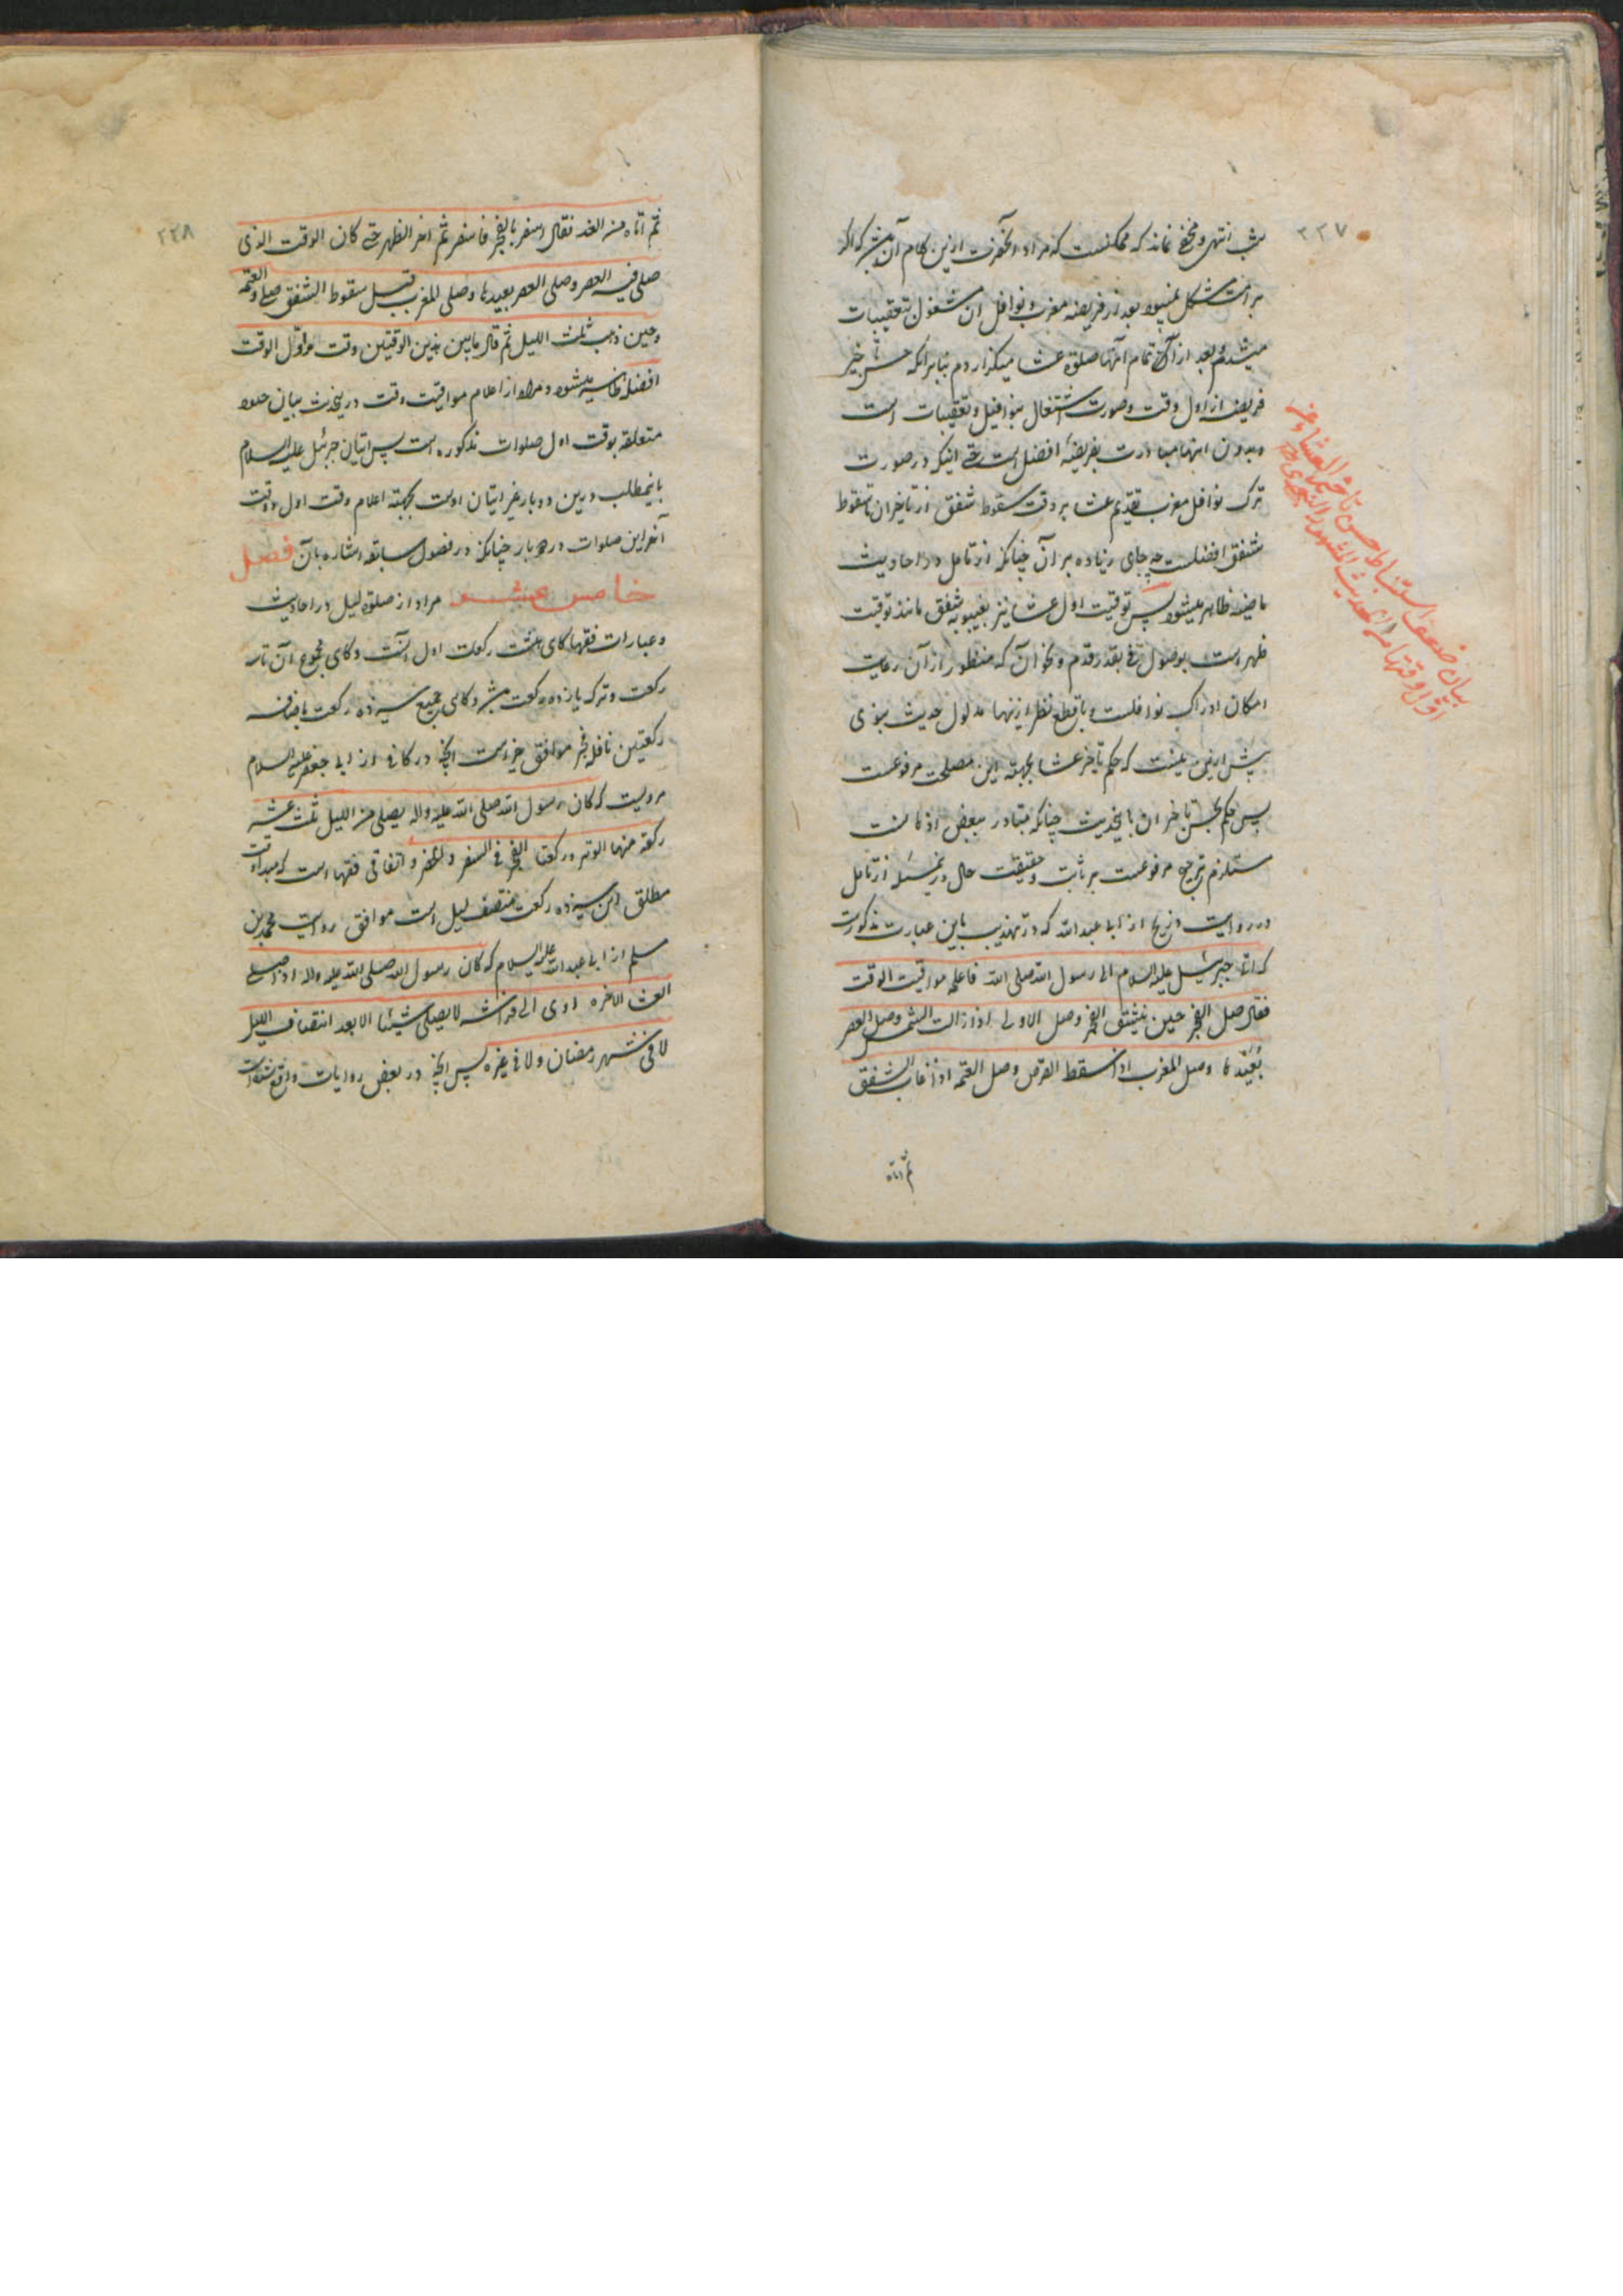 ۲۲۷
شب انتهی و مخفی نماند که ممکنست که مراد آنحضرت ازین کلام آن باشد که اگر
بر امت مشکل نمیبود بعد از فریضه مغرب و نوافل آن مشغول تعقیبات
میشدم و بعد از تمام آنها صلوة عشا میگزاردم بنابر آنکه حسن تاخیر
فریضه از اول وقت در صورت اشتغال بنوافل و تعقیبات است
و بدون اینها مبادرت بفریضه افضل است حتی اینکه در صورت
ترک نوافل مغرب تقدیم عشا بر وقت سقوط شفق از تاخیر آن تا سقوط
شفق افضلست چه جای زیاده بر آن چنانکه از تامل در احادیث
ماضیه ظاهر میشود پس توقیت اول عشا نیز بغیبوبة شفق مانند توقیت
ظهر است بوصول فی بقدر قدم و نحو آن که منظور از آن رعایت
امکان ادراک نوافلست و با قطع نظر ازینها مدلول حدیث نبوی
پیش ازین نیست که حکم تاخیر عشا بجهة این مصلحت مرفوعست
پس حکم بحسن تاخیر آن باینحدیث چنانکه متبادر ببعض اذهانست
مستلزم ترجیح مرفوعست بر ثابت و حقیقت حال درینمسئله از تامل
در روایت ذریح از ابی عبد الله که در تهذیب باین عبارت مذکورست
که اتی جبرئیل علیه السلام الی رسول الله صلی الله فاعلمه مواقیت الوقت
فقال صل الفجر حین ینشق الفجر وصل الاولی اذا زالت الشمس وصل العصر
بعیدها وصل المغرب اذا سقط القرص وصل العتمه اذا غاب الشفق
ثم اتاه
بیان ضعف استنباط حسن تاخیر العشاء عن
اول وقتها من الحدیث المشهور النبوی
۲۲۸
ثم اتاه من الغد فقال اسفر بالفجر فاسفر ثم اخر الظهر حتی کان الوقت الذی
صلی فیه العصر وصلی العصر بعیدها وصلی المغرب قبل سقوط الشفق وصلی العتمه
حین ذهب ثلث اللیل ثم قال ما بین هذین الوقتین وقت و اول الوقت
افضله ظاهر میشود و مراد از اعلام مواقیت وقت درینحدیث بیان حدود
متعلقه بوقت اول صلوات مذکوره است پس اتیان جبرئیل علیه السلام
باینمطلب درین دو بار غیر اتیان اوست بجهة اعلام وقت اول و وقت
آخر این صلوات در دو بار چنانکه در فصول سابقه اشاره بآن فصل
خامس عشر مراد از صلوة لیل در احادیث
و عبارات فقها گاهی هشت رکعت اول آنست و گاهی مجموع آن با سه
رکعت وتر که یازده رکعت باشد و گاهی جمیع سیزده رکعت باضافه
رکعتین نافله فجر موافق خبریست آنچه در کافی از ابی جعفر علیه السلام
مرویست که کان رسول الله صلی الله علیه واله یصلی من اللیل ثلث عشره
رکعة منها الوتر و رکعتا الفجر فی السفر و الحضر و اتفاقی فقها است که مبدا وقت
مطلق این سیزده رکعت منتصف لیل است موافق روایت محمد بن
مسلم از ابی عبد الله علیه السلام که کان رسول الله صلی الله علیه واله اذا صلی
العشا الاخره اوی الی فراشه لا یصلی شیئا الا بعد انتصاف اللیل
لا فی شهر رمضان ولا فی غیره پس آنچه در بعض روایات واقع شده است